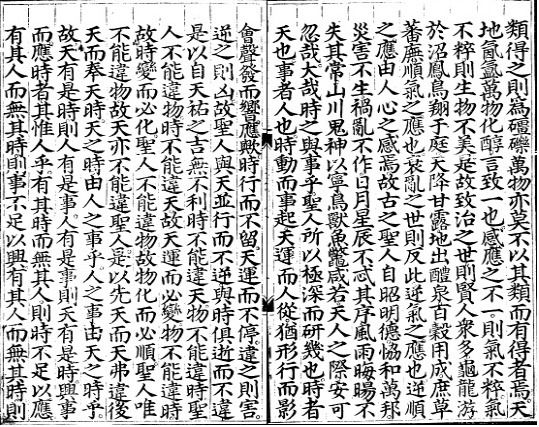 類得之則爲礓礫萬物亦莫不以其類而有得者焉天
地氤氳萬物化醇言致一也感應之不一則氣不粹氣
不粹則生物不美是故致治之世則賢人衆多龜龍游
於沼鳳鳥翔于庭天降甘露地出醴泉百穀用成庶草
蕃廡順氣之應也衰亂之世則反此逆氣之應也逆順
之應由人心之感焉故古之聖人自昭明德恊和萬邦
災害不生禍亂不作日月星辰不忒其序風雨暘不
失其常山川鬼神以寧鳥獸魚鱉咸若天人之際安可
忽哉大哉時之與事乎聖人所以極深而研幾也時者
天也事者人也時動而事起天運而人從猶形行而影
會聲發而響應歟時行而不留天運而不停違之則害
逆之則凶故聖人與天並行而不逆與時俱逝而不違
是以自天祐之吉無不利時不能違天物不能違時聖
人不能違物時不能違天故天運而必變物不能違時
故時變而必化聖人不能違物故物化而必順聖人唯
不能違物故天亦不能違聖人是以先天而天弗違後
天而奉天時天之時由人之事乎人之事由天之時乎
故天有是時則人有是事人有是事則天有是時興事
而應時者其惟人乎有其時而無其人則時不足以應
有其人而無其時則事不足以興有其人而無其時則